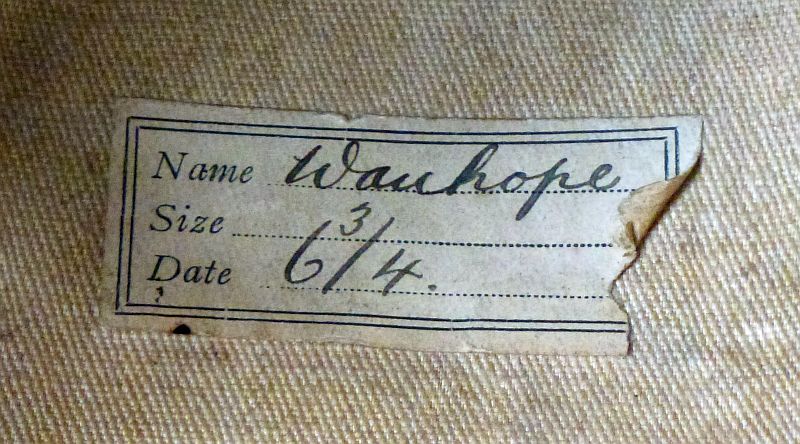 Name Wauhope
Size
Date 6 3/4.